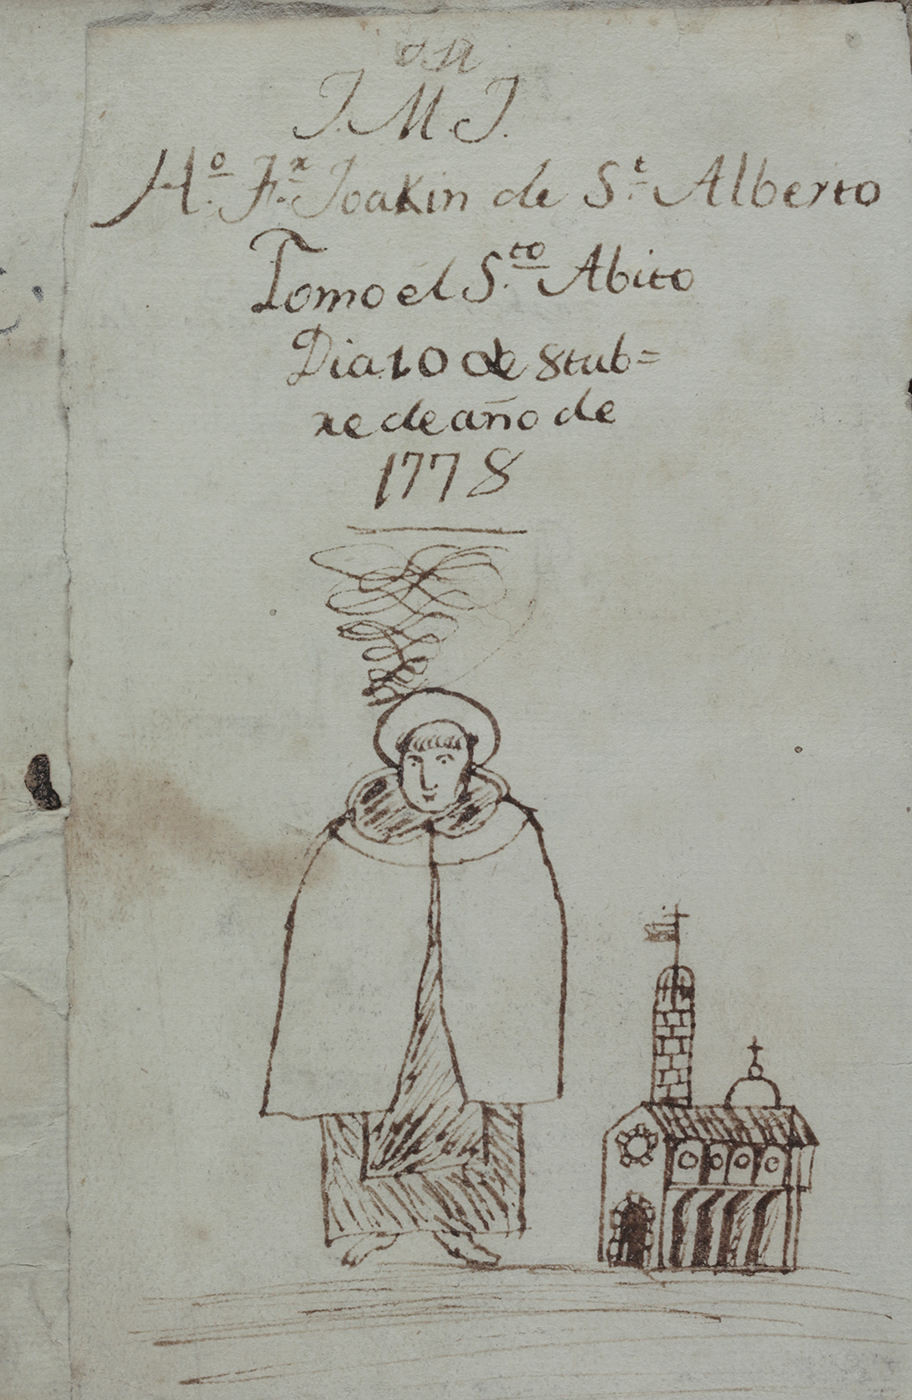 J. M. J.
H.º F.r Joakin de S.t Alberto
Tomo el S.to Abito
Dia 10 de 8tub=
re de año de
1778